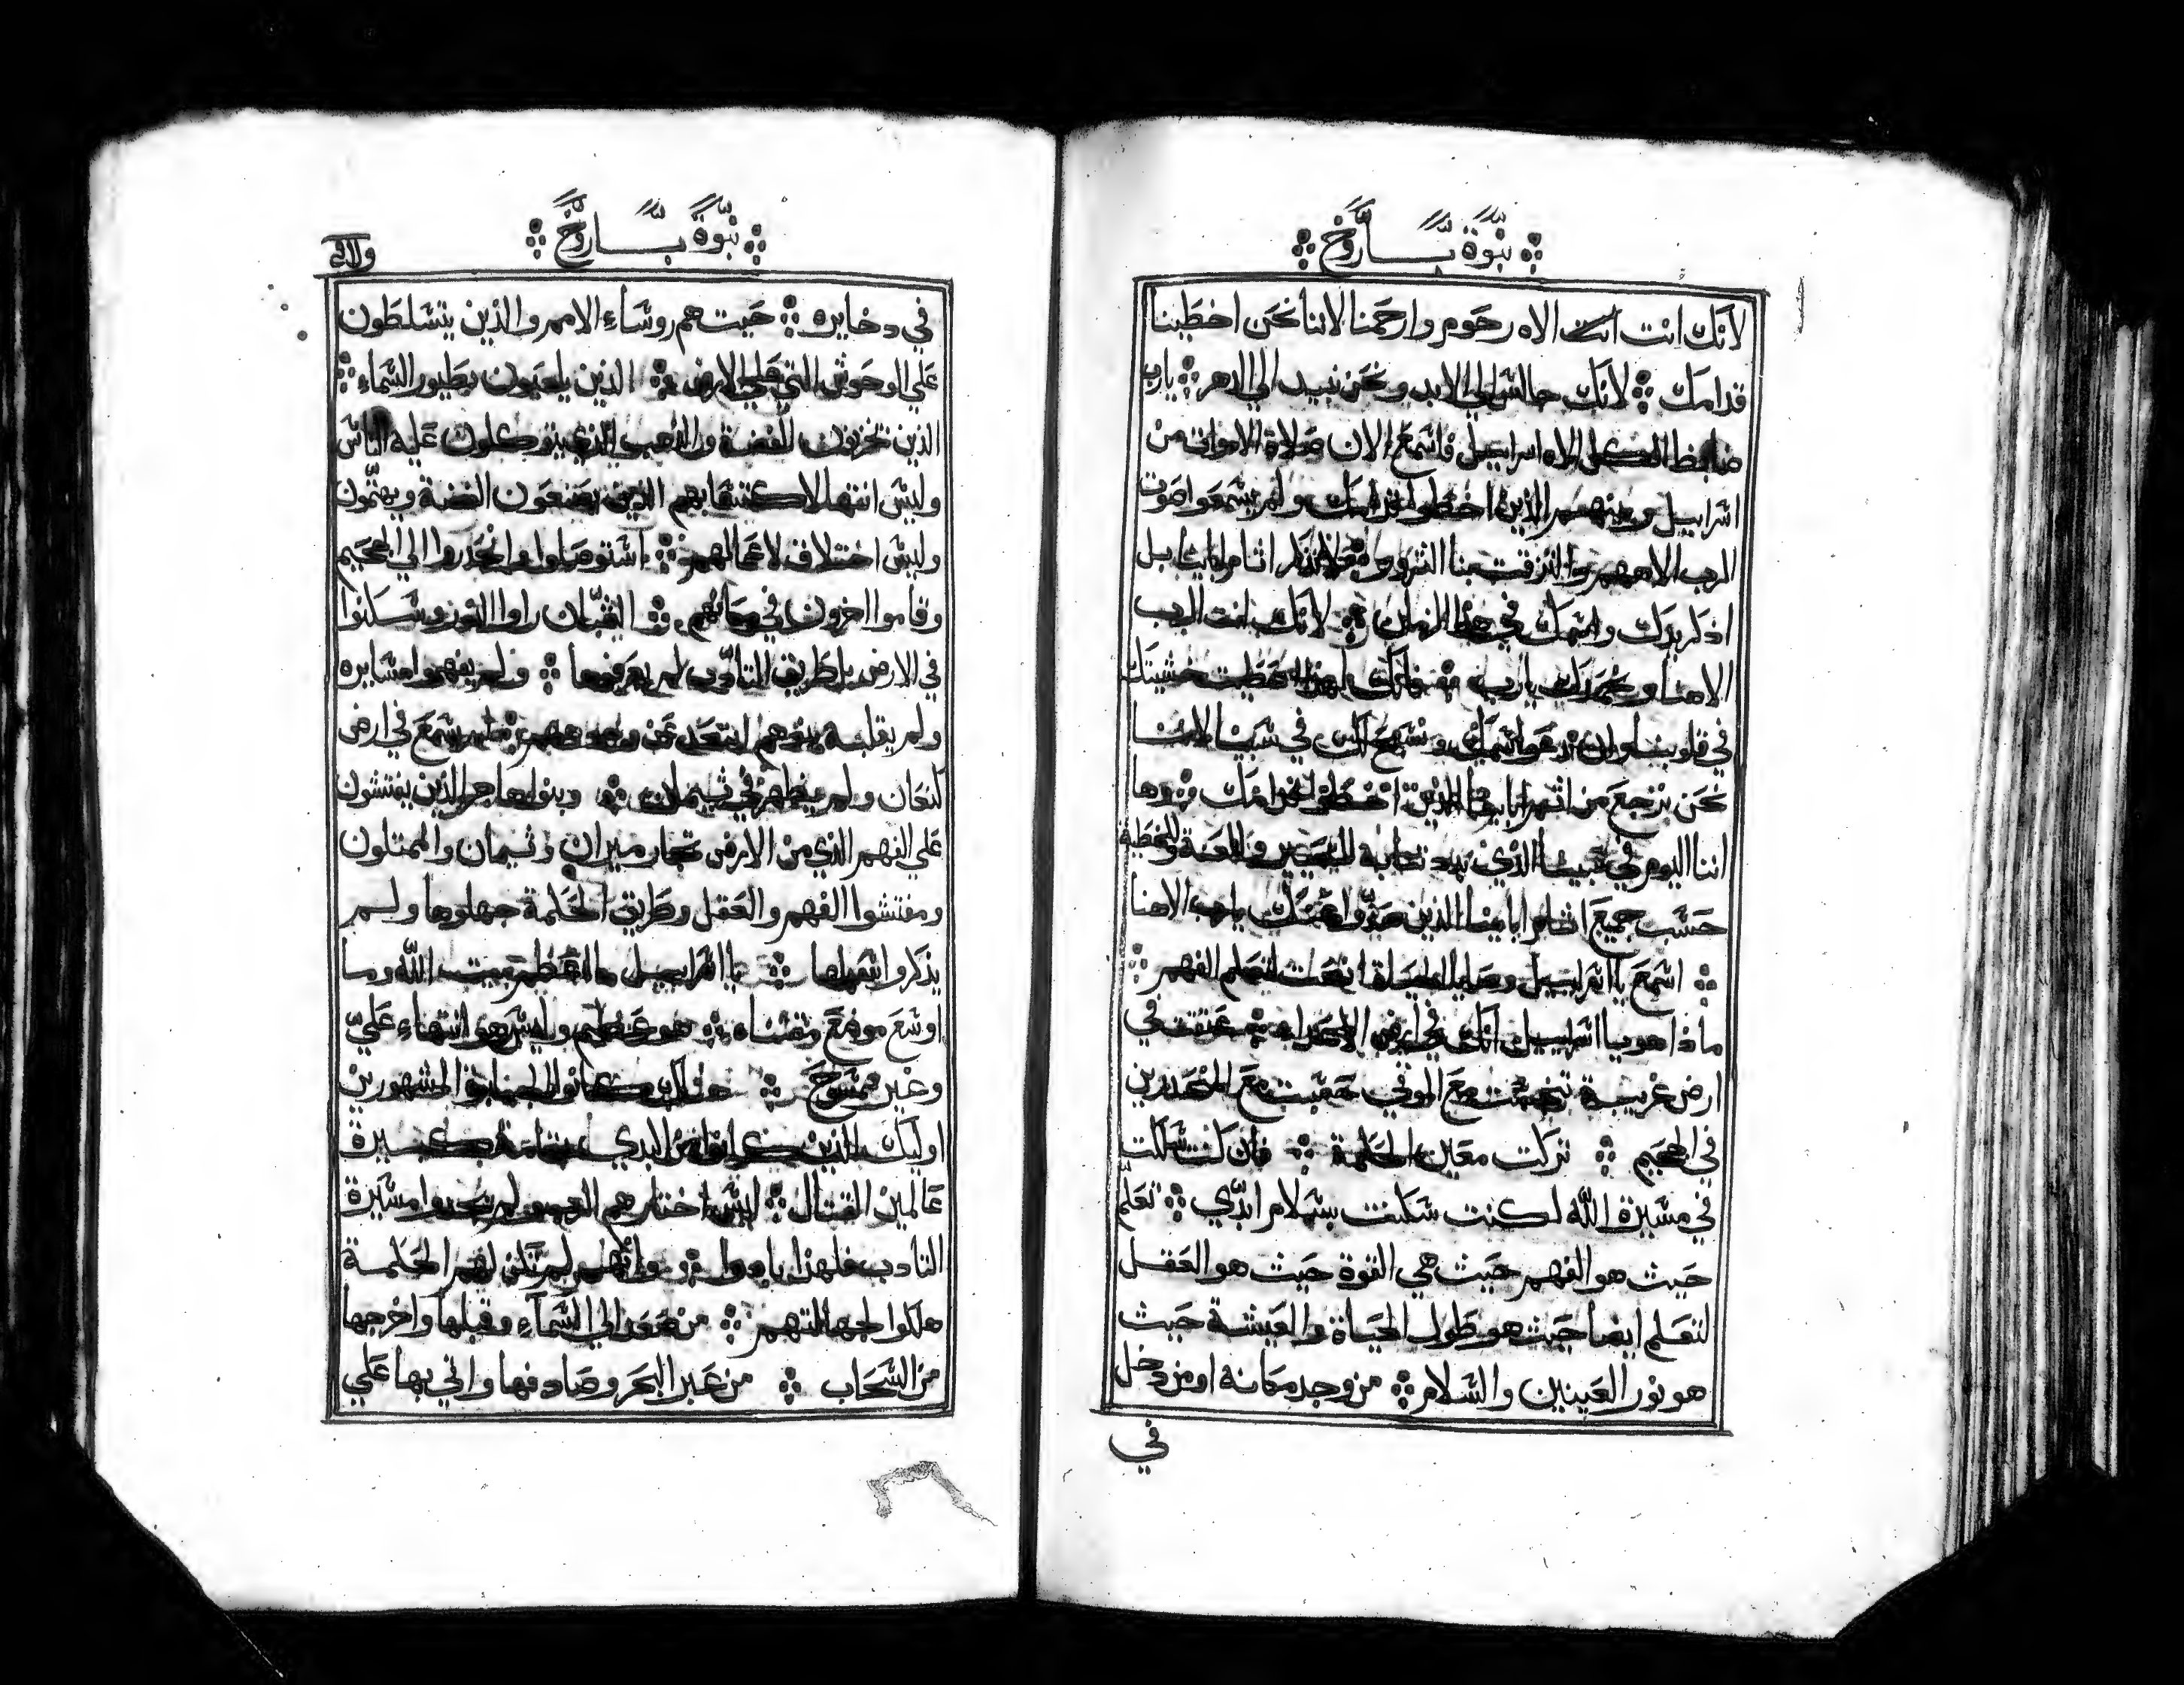 نبوة بـاروخ
لانك انت انت الاه رحوم وارحمنا لاننا نحن اخطينا
قدامك لانك جالس الي الابد ونحن نبيد الي الدهر يارب
ضابط الكل الاه اسراييل فاسمع الان صلاة الاموات من
اسراييل وبنيهم الذين اخطوا قدامك ولم يسمعوا صوت
الرب الاههم والتزقت بنا الشرور فلا تذكر اثام اباينا بل
اذكر يدك واسمك في هذا الزمان لانك انت الرب
الاهنا ونحمدك يارب لهذا اعطيت خشيتك
في قلوبنا في سبينا لاننا
نحن نرجع من اثم اباينا الذين اخطوا قدامك وها
اننا اليوم في سبينا الذي واللعنة والخطية
حسب جميع اثام اباينا الذين يارب الاهنا
اسمع يا اسراييل وصايا الحياة انصت لتعلم الفهم
ماذا هو يا اسراييل انك في ارض الاعداء عتقت في
ارض غريبة تنجست مع الموتي حسبت مع المنحدرين
في الجحيم تركت معين الحكمة فان كنت سلكت
في مسيرة الله لكنت سكنت بسلام ابدي تعلم
حيث هو الفهم حيث هي القوة حيث هو العقل
لتعلم ايضا حيث هو طول الحياة والعيشة حيث
هو نور العينين والسلام من وجد مكانه او من دخل
في
نبوة بـاروخ
في دخايره حيت هم روساء الامم والذين يتسلطون
علي الوحوش التي علي الارض الذين يلعبون بطيور السماء
الذين يخزنون الفضة والذهب الذي يتوكلون عليه الناس
وليس انتها لاكتتنابهم الذين يصنعون الفضة ويهتمون
وليس اختلاف لاعمالهم استوصلوا وانحدروا الي الجحيم
وقاموا اخرون في مكانهم الشبان راوا النور وسكنوا
في الارض بل طريق التادب لم يعرفوها ولم يفهموا مسايره
ولم يقبله بنوهم ابتعد عن لم يسمع في ارض
كنعان ولم يظهر في ثيمان وبنوا هاجر الذين يفتشون
علي الفهم الذي من الارض تجار ميران وثيمان والممثلون
ومفتشوا الفهم والعقل وطريق الحكمة جهلوها ولم
يذكروا سبلها يا اسراييل ما اعظم بيت الله وما
اوسع موضع مقتناه هو عظيم وليس هو انتهاء علي
وغير ممسوح هناك كانوا الجبابرة المشهورين
اوليك الذين كانوا من البدي بقامة كبيرة
عالمين القتال ليس اختار هم الرب ولم يجدوا مسيرة
التادب فلهذا بادوا ولم تكن لهم الحكمة
هلكوا لجهالتهم من صعد الي السماء وقبلها واخرجها
من السحاب من عبر البحر وصادفها واتي بها علي